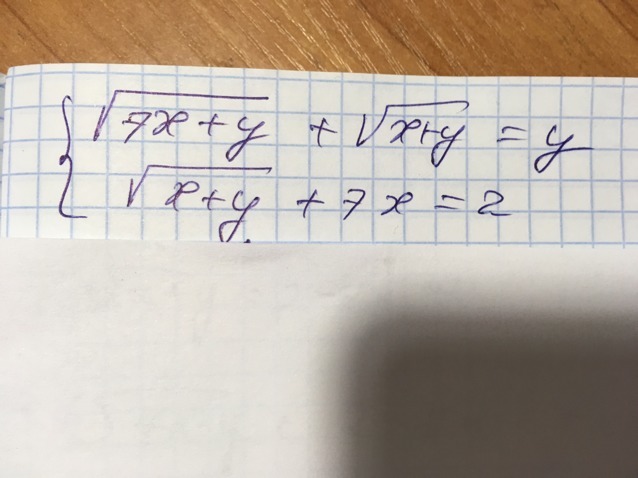 √(7x+y) + √(x+y) = y
√(x+y) + 7x = 2